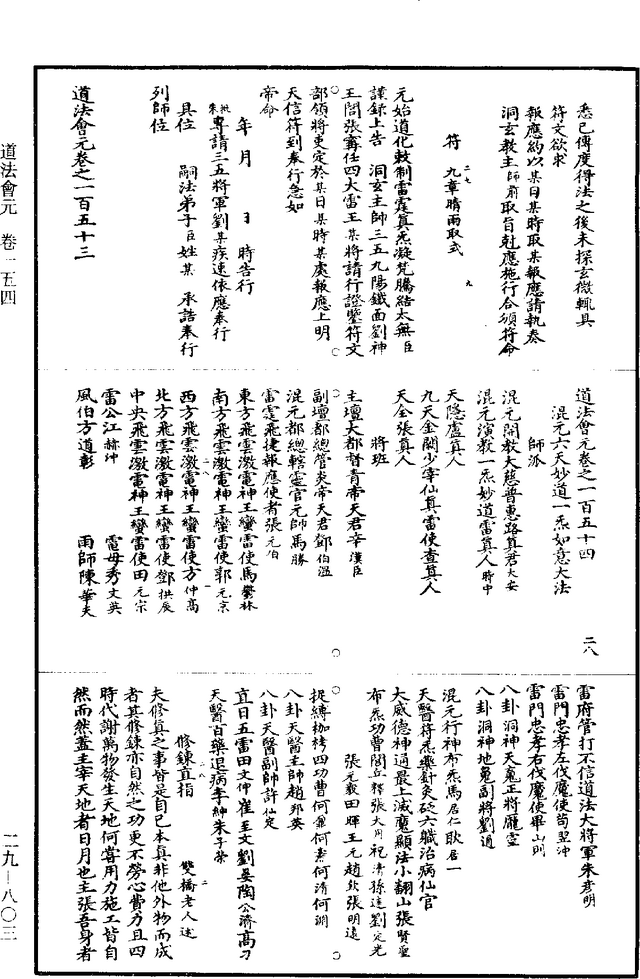 道法會元 卷一五四
二九—八〇三
悉已傳度得法之後未探玄微輒具
符文欲求
報應約以某日某時取某報應請執奏
洞玄教主師前取旨尅應施行合頒符命
符 九章晴雨取式
元始道化敕制雷霆真炁凝梵騰結太無臣
謹録上告 洞玄主師三五九陽鐵面劉神
王閻張竇任四大雷王某將請行證鑒符文
部領將吏定於某日某時某處報應上明
天信符到奉行急如
帝命
年 月 日 時告行
批朱專請三五將軍劉某疾速依應奉行
具位 嗣法弟子臣姓某 承誥奉行
列師位
道法會元卷之一百五十三
道法會元卷之一百五十四
二八
混元六天妙道一炁如意大法
師派
混元開教大慈普惠路真君大安
混元演教一炁妙道雷真人時中
天隱盧真人
九天金闕少宰仙真雷使查真人
天全張真人
將班
主壇大都督青帝天君辛漢臣
副壇都總管炎帝天君鄧伯溫
混元都總轄靈官元帥馬勝
雷霆飛捷報應使者張元伯
東方飛雲激電神王蠻雷使馬鬱林
南方飛雲激電神王蠻雷使郭元京
西方飛雲激電神王蠻雷使方仲高
北方飛雲激電神王蠻雷使鄧拱辰
中央飛雲激電神王蠻雷使田元宗
雷公江赫沖 電母秀文英
風伯方道彰 雨師陳華夫
雷府管打不信道法大將軍朱彥明
雷門忠孝左伐魔使苟翌沖
雷門忠孝右伐魔使畢山則
八卦洞神天冤正將龐靈
八卦洞神地冤副將劉通
混元行神布炁馬居仁耿居一
天醫符炁藥針灸砭六職治病仙官
大威德神通最上滅魔顯法小翻山張賢聖
布炁功曹閻立釋張大用祝清孫達劉定光
張元載田暉王元趙欽張明遠
捉縛枷栲四功曹何衆何素何清何淵
八卦天醫主師趙邦英
八卦天醫副師許仙定
直日五雷田文仲崔主文劉晏陶公濟高刁
天醫百藥退病李紳朱子榮
修鍊直指 雙橋老人述
夫修真之事皆是自己本真非他外物而成
者其修鍊亦自然之功更不勞心費力且四
時代謝萬物發生天地何嘗用力施工皆自
然而然蓋主宰天地者日月也主張吾身者